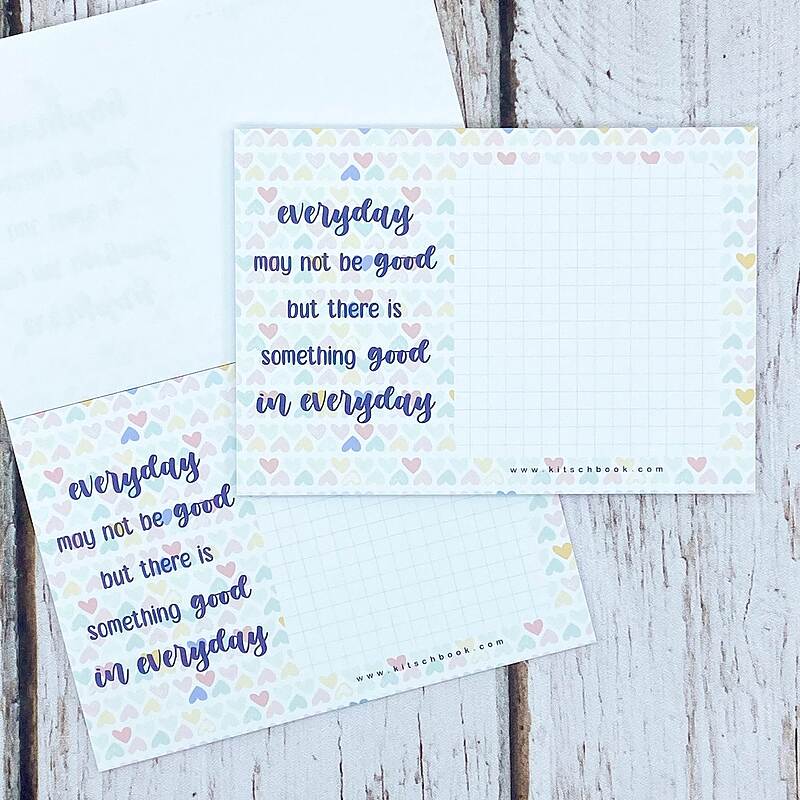 everyday
may not be good
but there is
something good
in everyday
www.kitschbook.com
everyday
may not be good
but there is
something good
in everyday
www.kitschbook.com